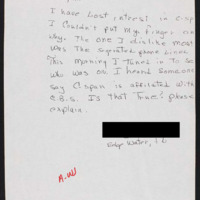 I have Lost interest in C-Sp
I couldn't put my finger on
why. The one I dislike most
was the separated phone lines
This morning I tuned in to se
who was on I heard someone
say C-Span is affilated with
C.B.S. Is that True? please
explain.
Edge Water,
A.W